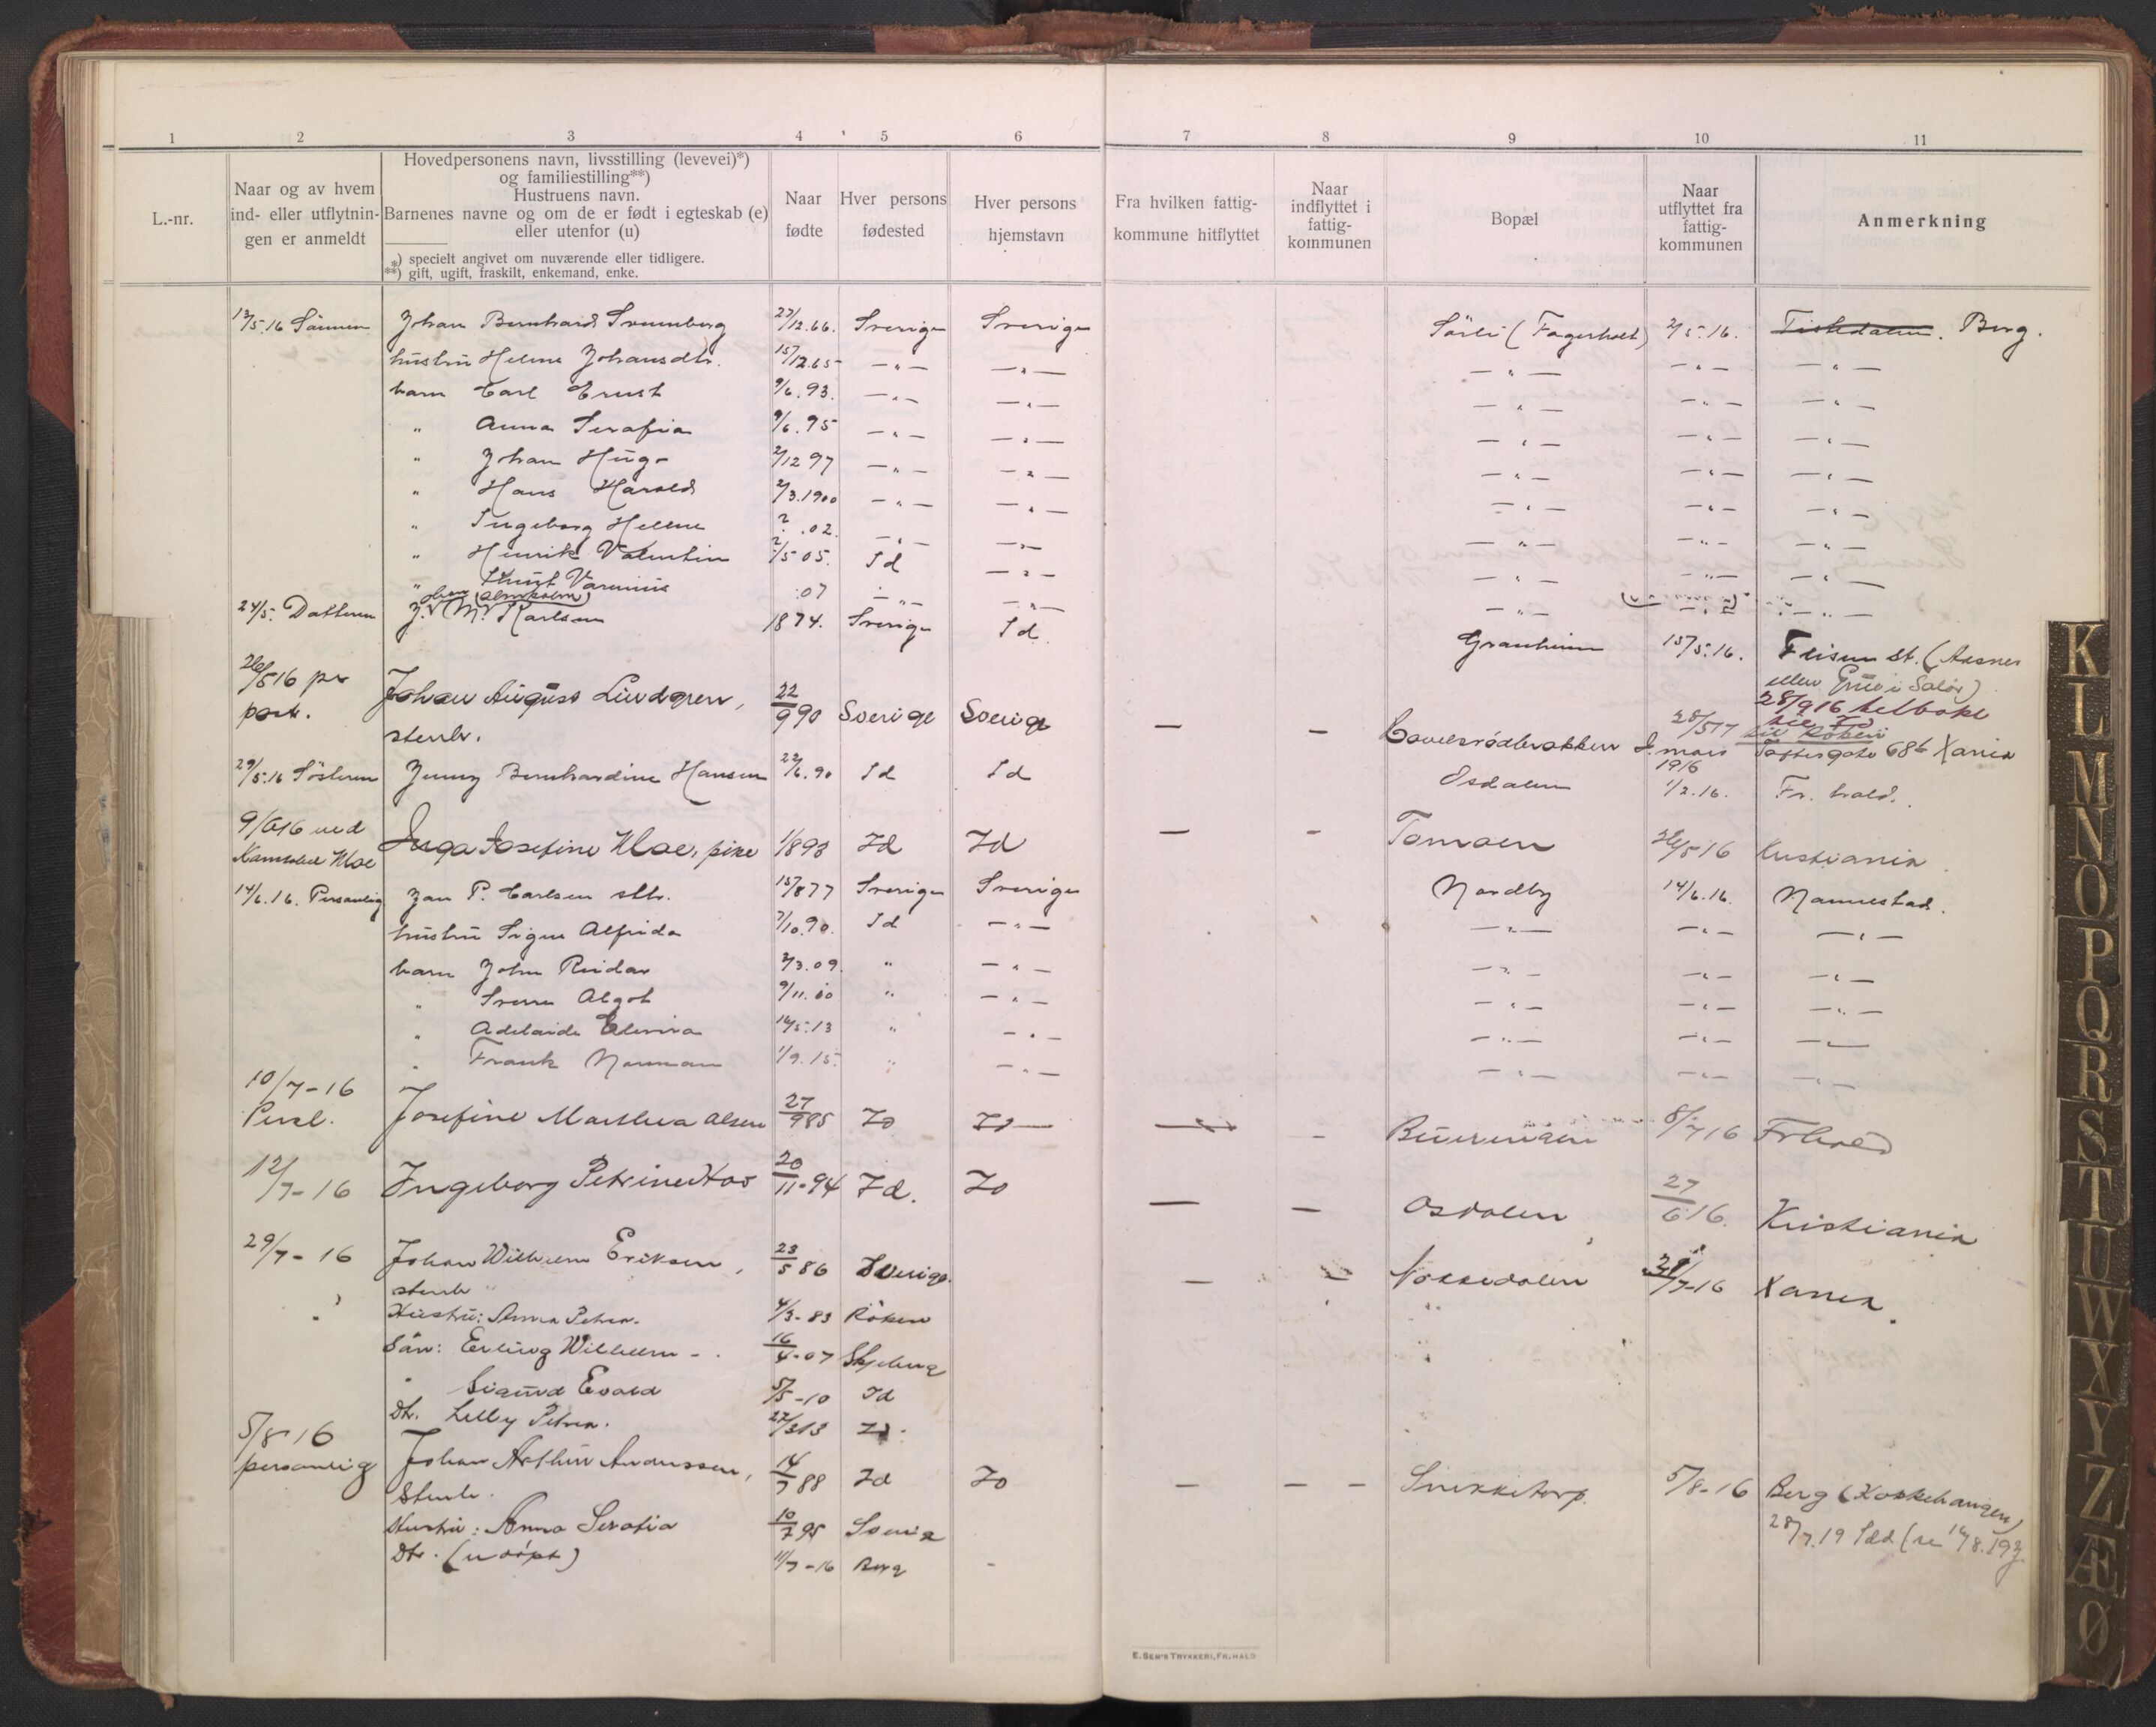 1 2 3 4 5 6 7 8 9 10 11
L.-nr.
Naar og av hvem
ind- eller utflytnin-
gen er anmeldt
Hovedpersonens navn, livsstilling (levevei)*)
og familiestilling**)
Hustruens navn.
Barnenes navne og om de er født i egteskab (e)
eller utenfor (u)
*) specielt angivet om nuværende eller tidligere.
**) gift, ugift, fraskilt, enkemand, enke.
Naar
fødte
Hver persons
fødested
Hver persons
hjemstavn
Fra hvilken fattig-
kommune hitflyttet
Naar
indflyttet i
fattig-
kommunen
Bopæl
Naar
utflyttet fra
fattig-
kommunen
Anmerkning
13/5.16 Sønnen Johan Bernhard 27/12.66. Sverige Sverige Sörli (Fagerholt) 2/5.16. Tistedalen. Berg.
hustru Helene Johansdtr. 15/12.65 — " — — " — — " — — " — — " —
barn Carl Ernst 9/6.93. — " — — " — — " — — " — — " —
" Anna Serafia 9/6.95 — " — — " — — " — — " — — " —
" Johan Hugo 2/12 97 — " — — " — — " — — " — — " —
" Hans Harald 2/3.1900 — " — — " — — " — — " — — " —
" Ingeborg Helene ? .02. — " — — " — — " — — " — — " —
" Henrik Valentin 2/5 05. Id — " — — " — — " — — " —
" Knut 07 — " — — " — — " — — " — — " —
24/5. Datteren J. M. Karlsen 1874. Sverige Id. Granheim 15/5.16. Flisen st. (Aasnes
eller Grue i Solør)
26/5 16 pr
post. Johan August Lindgren, 22/9 90 Sverige Sverige — —
stenh. 28/9 16 tilbake
til Id
28/5 17 til Röken
mars 1916 68b Xania
29/5.16 Søsteren Jenny Bernhardine Hansen 22/6.90 Id Id Osdalen 1/2.16. Fr. hald.
9/6 16 ved
Moe Inga Josefine Moe, pike 1/8 98 Id Id — — 26/5 16 Kristiania
14/6.16. Personlig Jan P. Carlsen sth. 15/8 77 Sverige Sverige Nordby 14/6.16. Nannestad.
hustru Signe Alfrida 7/10.90. Id — " — — " — — " — — " —
barn John Reidar 2/3.09. " — " — — " — — " — — " —
" Sverre Algot 9/11.10 " — " — — " — — " — — " —
" Adelaide Elvira 14/5.13 " — " — — " — — " — — " —
" Frank Norman 1/9.15. " — " — — " — — " — — " —
10/7-16
Persl. Josefine Mathea Olsen 27/9 85 Id Id — — 8/7 16 Frhald
12/7-16 Ingeborg Petrine 20/11-94 Id. Id — — Osdalen 27/6 16. Kristiania
29/7-16 Johan Wilhelm Eriksen, 23/5 86 Sverige. — — Nokkedalen /7-16 Xania.
stenh
Hustru: Anna Petrea. 4/3-83 Röken
Sön: Erling Wilhelm 16/4-07 Skjeberg
" Sigurd Evald 5/5-10 Id
Dtr. Lelly Petrea. 27/3 13 Id.
5/8 16
personlig Johan Arthur Anderssen, 14/7 88 Id Id — — — 5/8-16 Berg (
Stenh.
Hustru: Anna Serafia 10/7 95 Sverige 28/7.19 Idd (se 14/8.19
Dtr. (udöpt) 11/7-16 Berg -
E. SEM'S TRYKKERI, FR.HALD
K
L
M
N
O
P
Q
R
S
T
U
W
X
Y
Z
Æ
Ø